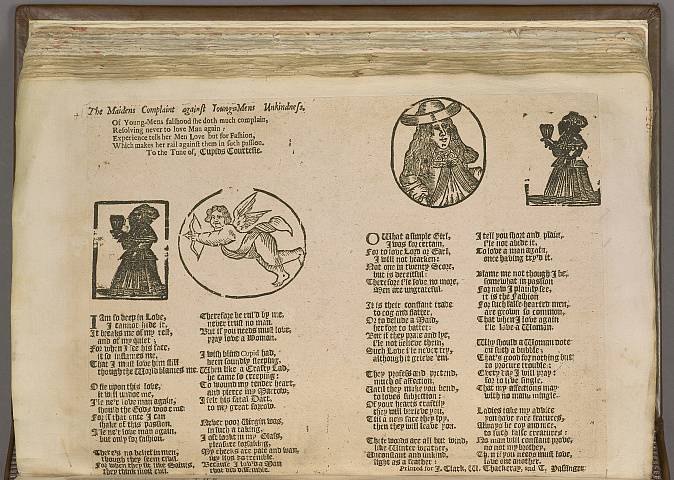 The Maidens Complaint against Young-Mens Unkindness.
Of Young-Mens falshood she doth much complain,
Resolving never to love Man again;
Experience tells her Men Love but for Fashion,
Which makes her rail against them in such passion.
To the Tune of, Cupids Courtesie.
I Am so deep in Love,
I cannot hide it.
It breaks me of my rest,
and of my quiet;
For when I see his face,
it so inflames me,
That I must love him still
though the World blames me.
O fie upon this love,
it will undoe me,
I'le ne'r love man again,
should the Gods wooe me:
For if that once I can
shake of this passion,
I'le ne'r love man again,
but only for fashion.
There's no belief in men,
though they seem civil
For when they like Saints,
they think most evil.
Therefore be rul'd by me,
never trust no man.
But if you needs must love,
pray love a Woman.
I wish blind Cupid had,
been soundly sleeping,
When like a Crafty Lad,
he came so creeping:
To wound my tender heart,
and pierce my Marrow,
I felt his fatal Dart,
to my great sorrow.
Never poor Virgin was,
in such a taking,
I oft look in my Glass,
pleasure forsaking,
My cheeks are pale and wan,
my
Because I lov'd a Man
that did dissemble.
O What a simple Girl,
I was for certain,
For to love Lord or Earl,
I will not hearken:
Not one in twenty Score,
but is deceitful:
Therefore I'le love no more,
Men are ungrateful.
It is their constant trade
to cog and flatter,
Or to delude a Maid,
her for to batter:
But if they prate and lye,
I'le not believe them,
Such Love I'le never try,
although it grieve 'em.
They profess and pretend,
much of affection,
Until they make you bend,
to loves subjection:
Of your hearts craftily
they will bereive you,
Till a new face they spy,
then they will leave you.
Their words are all but wind,
like Winter weather,
Unconstant and unkind,
light as a feather:
I tell you short and plain,
I'le not abide it.
To love a man again,
once having try'd it.
Blame me not though I be,
somewhat in passion
For now I plainly see,
it is the Fashion
For such false-hearted men,
are grown so common,
That when I love again
I'le love a Woman.
Why should a Woman dote
on such a bubble;
That's good for nothing but
to procure trouble:
Every day I will pray:
for to live single.
That my affections may
with no man mingle.
Ladies take my advice
you have rare features,
Always be coy and nice,
to such false creatures:
No man will constant prove,
no not my brother,
Then if you needs must love,
love one another.
Printed for J. Clark, W. Thackeray, and T. Passinger.